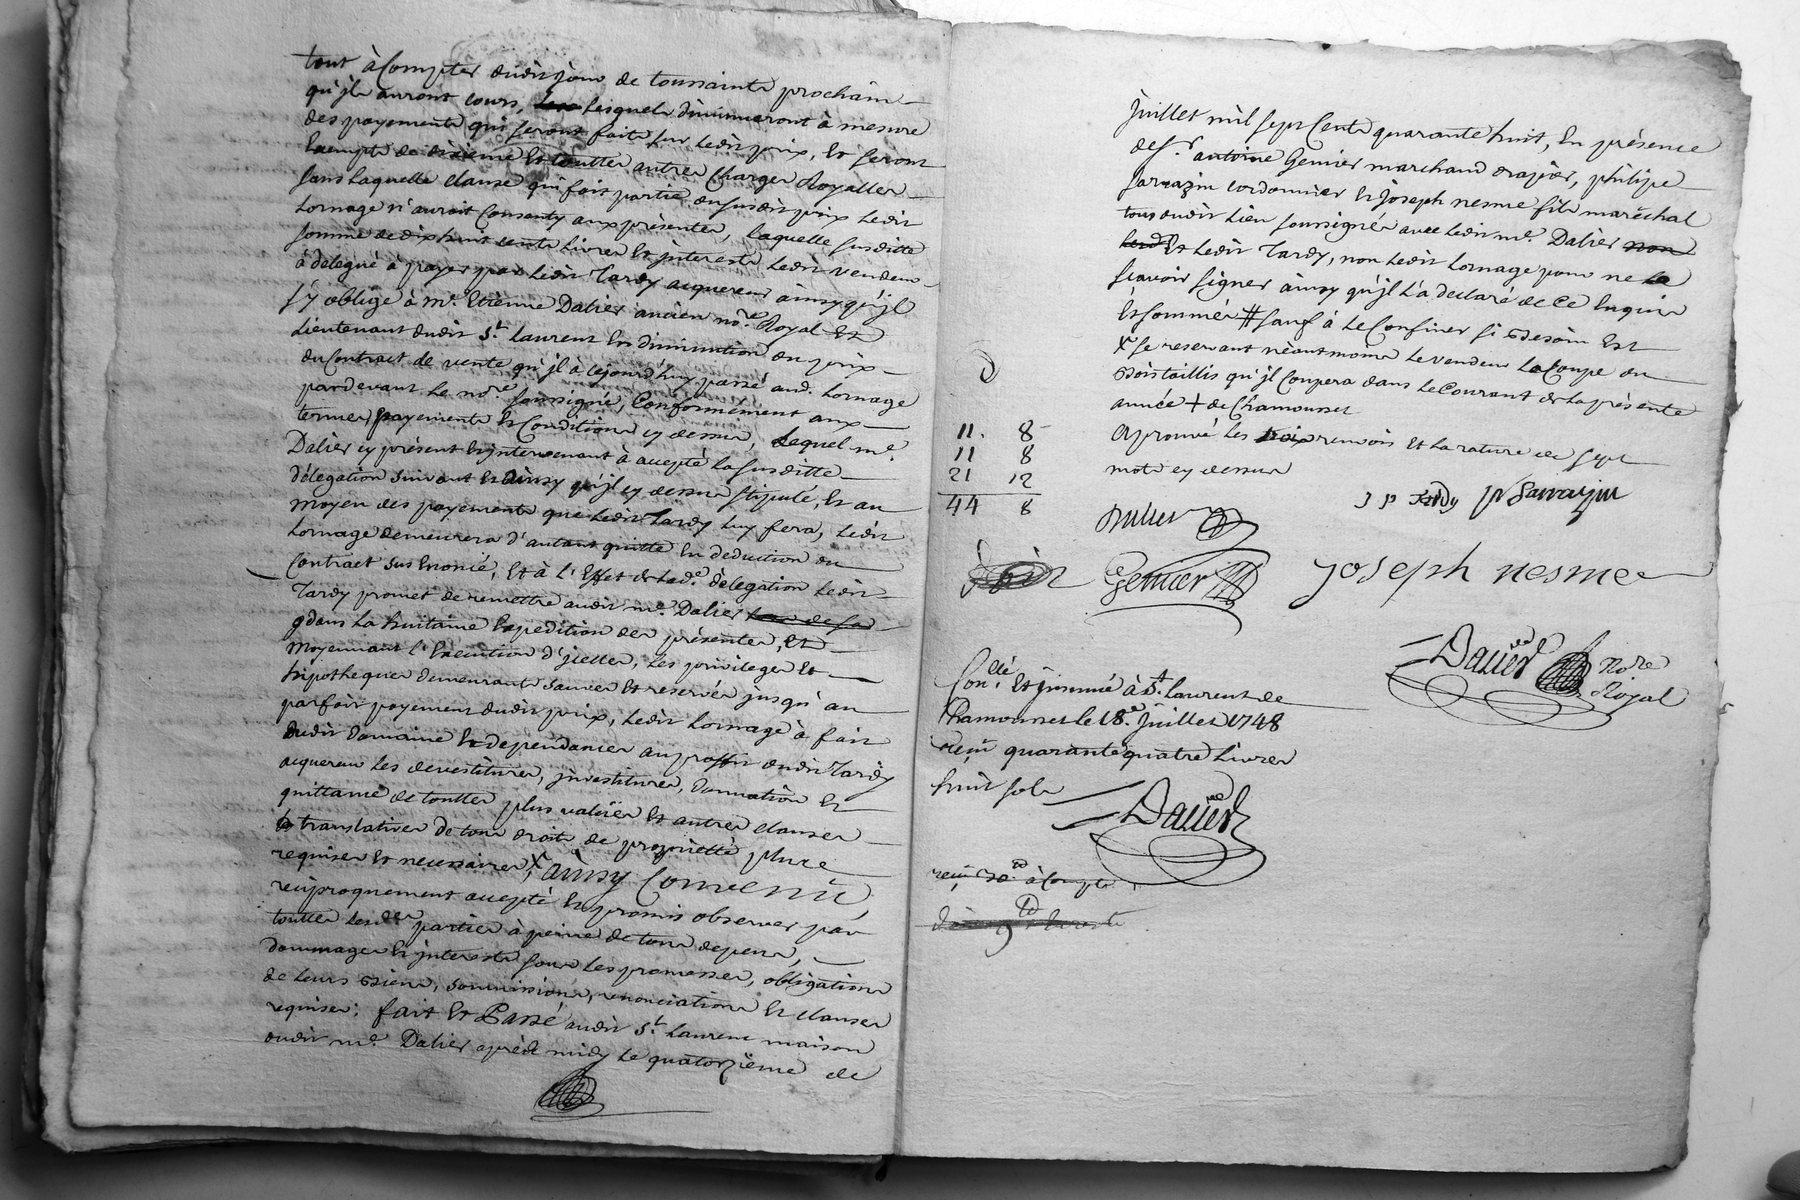 tout à Compter dudit jour de toussaints prochain
qu'jls auront cours, lesquels diminueront à mesure
des payements qui seront faits sur ledit prix, et seront
Exempts de dixieme et touttes autres Charges Royalles
sans laquelle clause qui fait partie dususdit prix ledit
hornage n'auroit Consenty aux présentes, laquelle susditte
somme de dix huit cents livres et jnterests ledit vendeur
à delegué à payer par ledit Tardy acquereur ainsy qu'jl
s'y oblige à me. Etienne Dalier ancien nore. Royal et
Lieutenant dudit St. laurent en diminution du prix
du Contract de vente qu'jl à cejourd'huy passé aud. hornage
pardevant le nore. soussigné, Conformement aux
termes, payements et Conditions cy dessus, Lequel me.
Dalier cy présent et jntervenant à accepté la susditte
délégation suivant et ainsy qu'jl cy dessus stipulé, et au
moyen des payements que ledit Tardy luy fera, ledit
hornage demeurera d'autant quitte en deduction du
Contract sus énoncé, Et à l'Effet de lade. délegation ledit
Tardy promet de remettre audit me. Dalier
dans la huitaine Expedition des présentes, Et
moyennant l'Execution d'jcelles, les privileges et
hipotheques demeurants sauves et reservés jusqu'au
parfait payement dudit prix, ledit hornage à fait
dudit Domaine et dependances au proffit dudit Tardy
acquereur les devestitures, jnvestitures, donnation et
quittance de touttes plus values et autres clauses
translatives de tous droits de proprietté plus
requises et necessaires, X ainsy Convenu,
reciproquement accepté et promis observer par
touttes lesdes parties à peine de tous depens,
dommages et jnterests sous les promesses, obligations
de leurs biens, soumissions, renonciations et clauses
requises; fait et Passé audit St. Laurent maison
dudit me. Dalier après midy le quatorzième de
juillet mil sept Cents quarante huit, En présence
de sr. antoine Genier marchand drapier, philipe
sarrazin cordonnier et joseph nesme fils maréchal
tous dudit lieu soussignés avec ledit me. Dalier
et ledit Tardy, non ledit hornage pour ne
scavoir signer ainsy qu'jl l'a declaré de ce Enquis
et sommés # sauf à le Confiner si besoin Est
X se reservant néantmoins le vendeur la Coupe du
bois taillis qu'jl Coupera dans le Courant de la présente
année + de Chamousset
aprouvé les trois renvois et la rature de sept
mots cy dessus
11. 8
11 8
21 12
44 8
J P Tardy P Sarrazin
Dalier
Genier Joseph nesme
Dalier nore Royal
Conllé. Et jnsinué à St. laurent de
Chamousset le 18.e juillet 1748
reçu quarante quatre livres
huit sols
Dalier